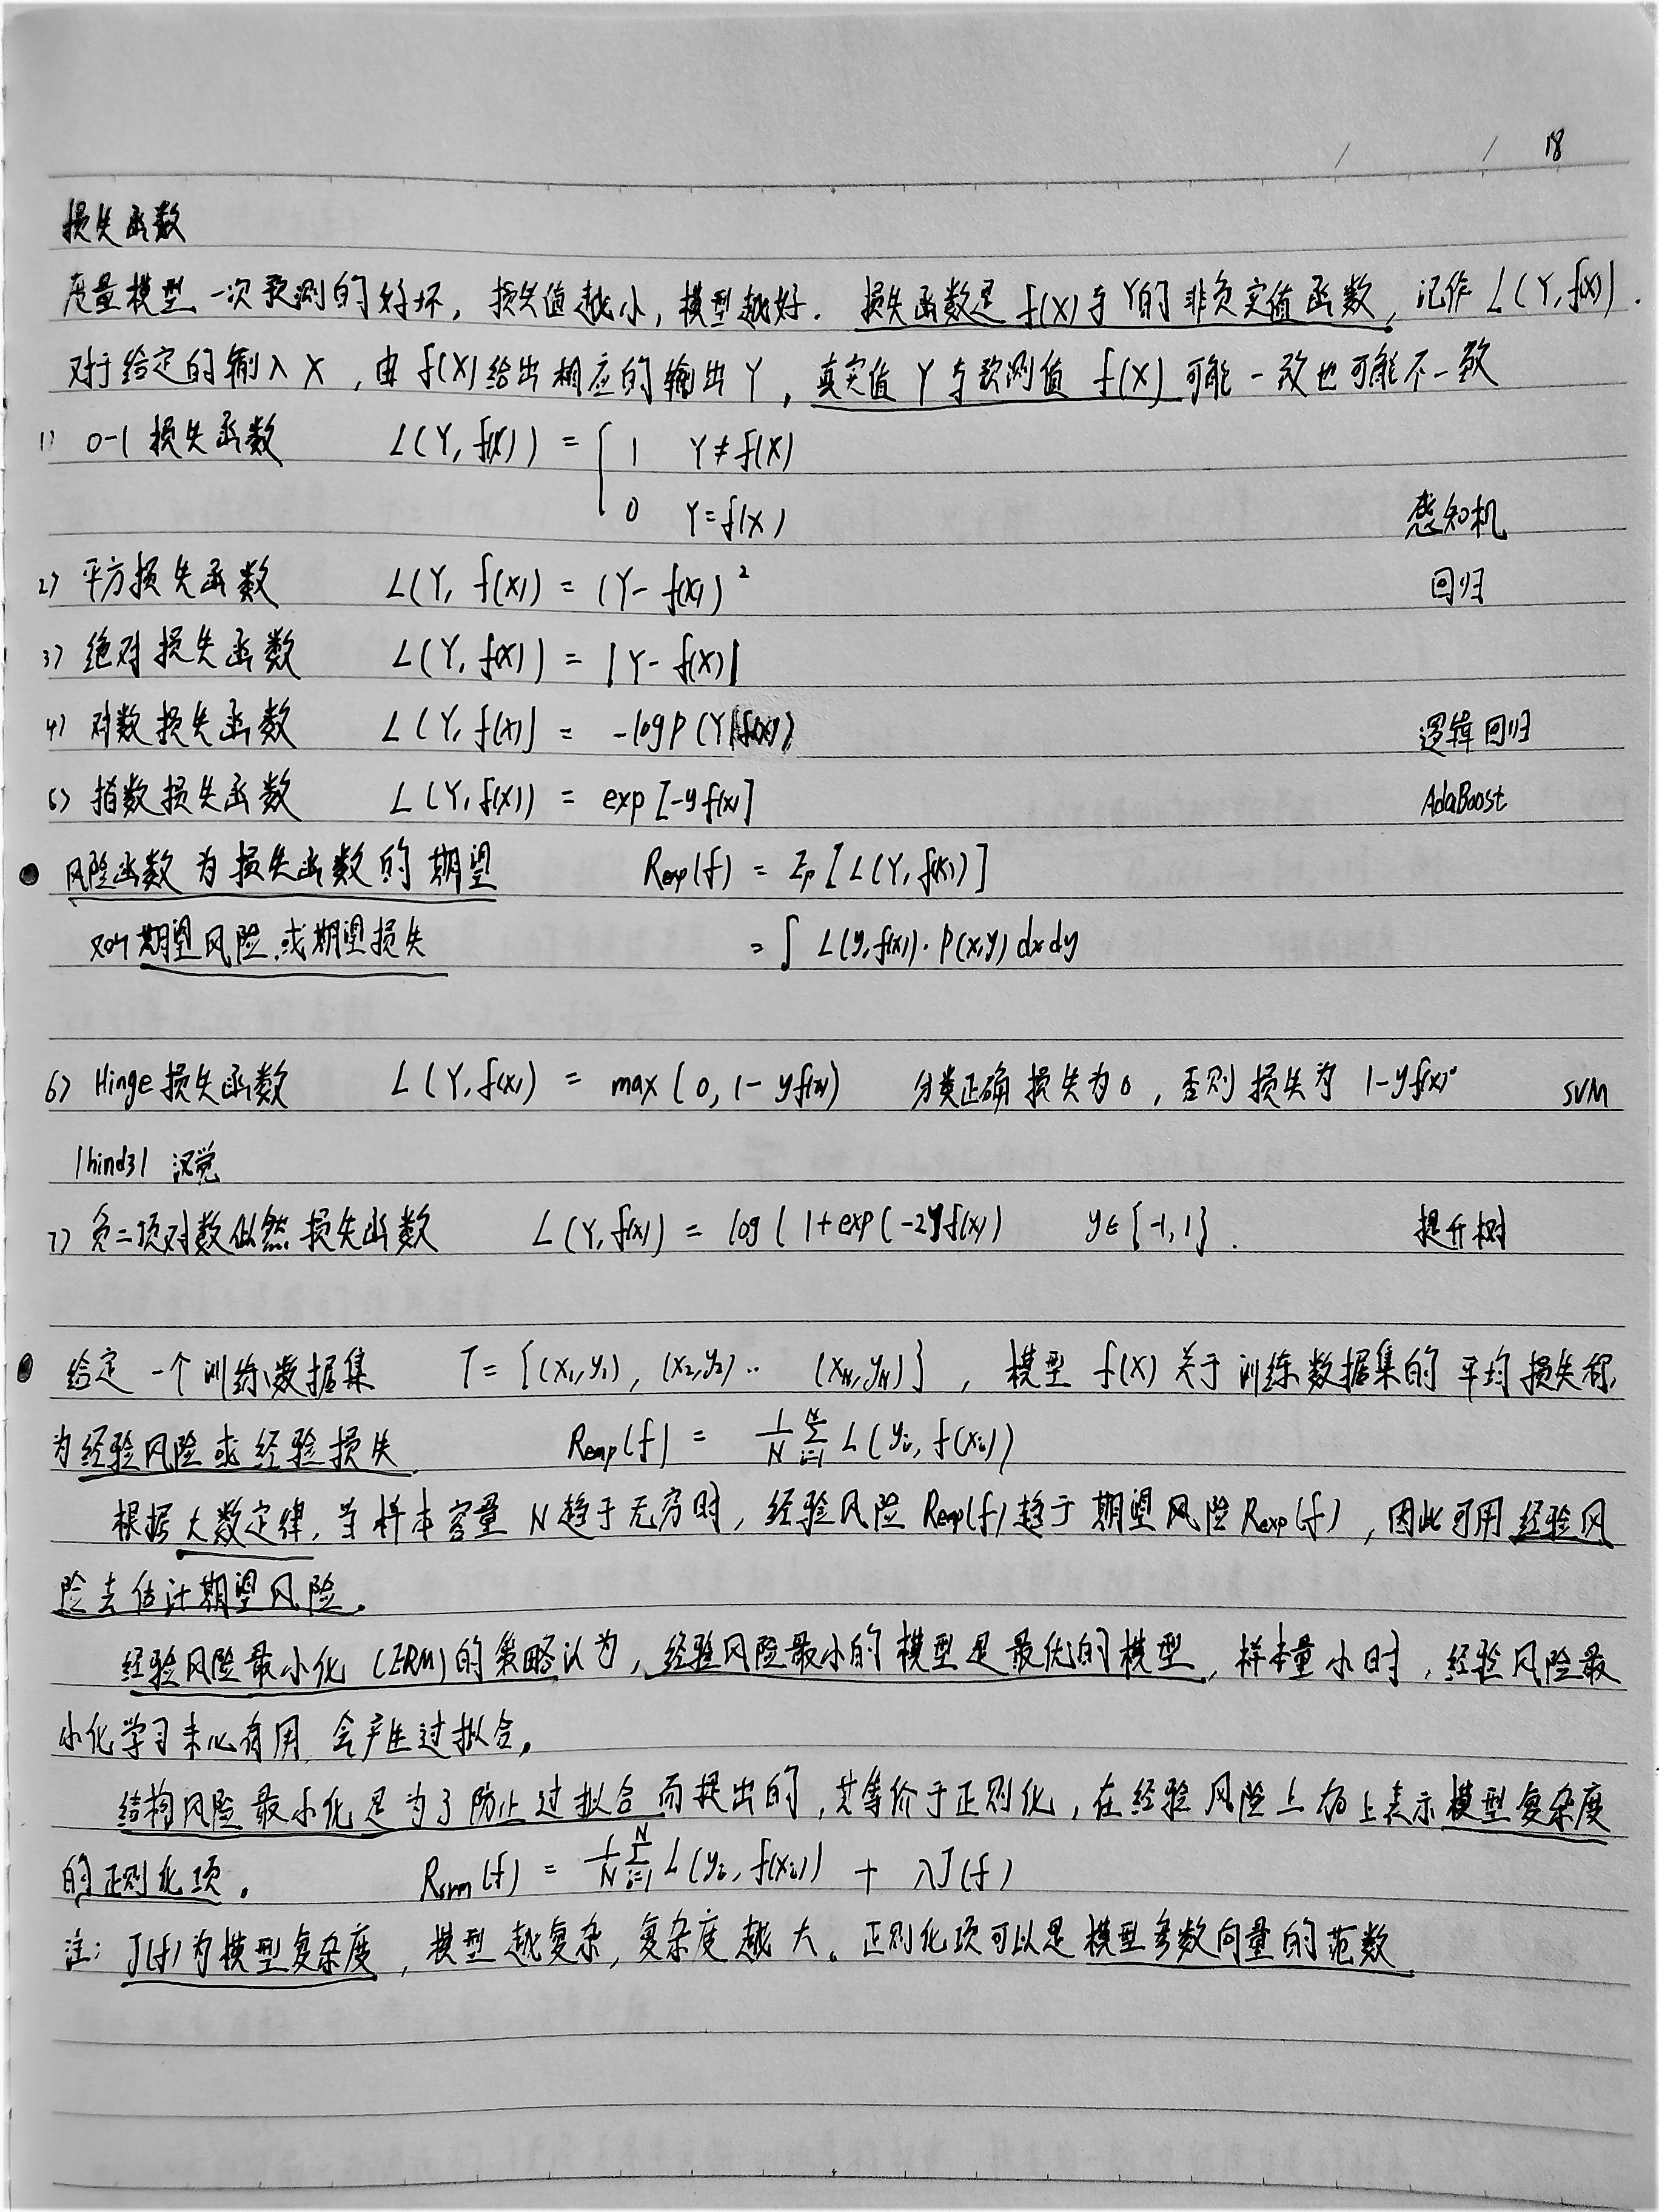 / / 18
损失函数
度量模型一次预测的好坏，损失值越小，模型越好．损失函数是 f(X)与Y的非负实值函数，记作 L(Y, f(X)).
对于给定的输入X，由f(X)给出相应的输出Y，真实值Y与预测值 f(X)可能一致也可能不一致
1) 0-1损失函数 L(Y, f(X)) = { 1 Y≠f(X)
0 Y=f(X) 感知机
2) 平方损失函数 L(Y, f(X)) = (Y-f(X))² 回归
3) 绝对损失函数 L(Y, f(X)) = |Y-f(X)|
4) 对数损失函数 L(Y, f(X)) = -logP(Y|f(X)) 逻辑回归
5) 指数损失函数 L(Y, f(X)) = exp[-yf(x)] AdaBoost
● 风险函数为损失函数的期望 Rexp(f) = Ep[L(Y, f(X))]
又叫期望风险或期望损失 = ∫ L(y, f(x))·P(x,y)dxdy
6) Hinge损失函数 L(Y, f(x)) = max(0, 1-yf(x)) 分类正确损失为0，否则损失为 1-yf(x) SVM
/hindʒ/
7) 负二项对数似然损失函数 L(Y, f(x)) = log(1+exp(-2yf(x)) y∈{-1,1}. 提升树
● 给定一个训练数据集 T={(x₁,y₁), (x₂,y₂)‥ (x_N,y_N)}，模型 f(X)关于训练数据集的平均损失称
为经验风险或经验损失 Remp(f) = 1/N ∑_{i=1}^{N} L(y_i, f(x_i))
根据大数定律，当样本容量N趋于无穷时，经验风险Remp(f)趋于期望风险Rexp(f)，因此可用经验风
险去估计期望风险。
经验风险最小化(ERM)的策略认为，经验风险最小的模型是最优的模型，样本量小时，经验风险最
小化学习未必有用，会产生过拟合。
结构风险最小化是为了防止过拟合而提出的，其等价于正则化，在经验风险上加上表示模型复杂度
的正则化项。 Rsrm(f) = 1/N ∑_{i=1}^{N} L(y_i, f(x_i)) + λJ(f)
注：J(f)为模型复杂度，模型越复杂，复杂度越大。正则化项可以是模型参数向量的范数